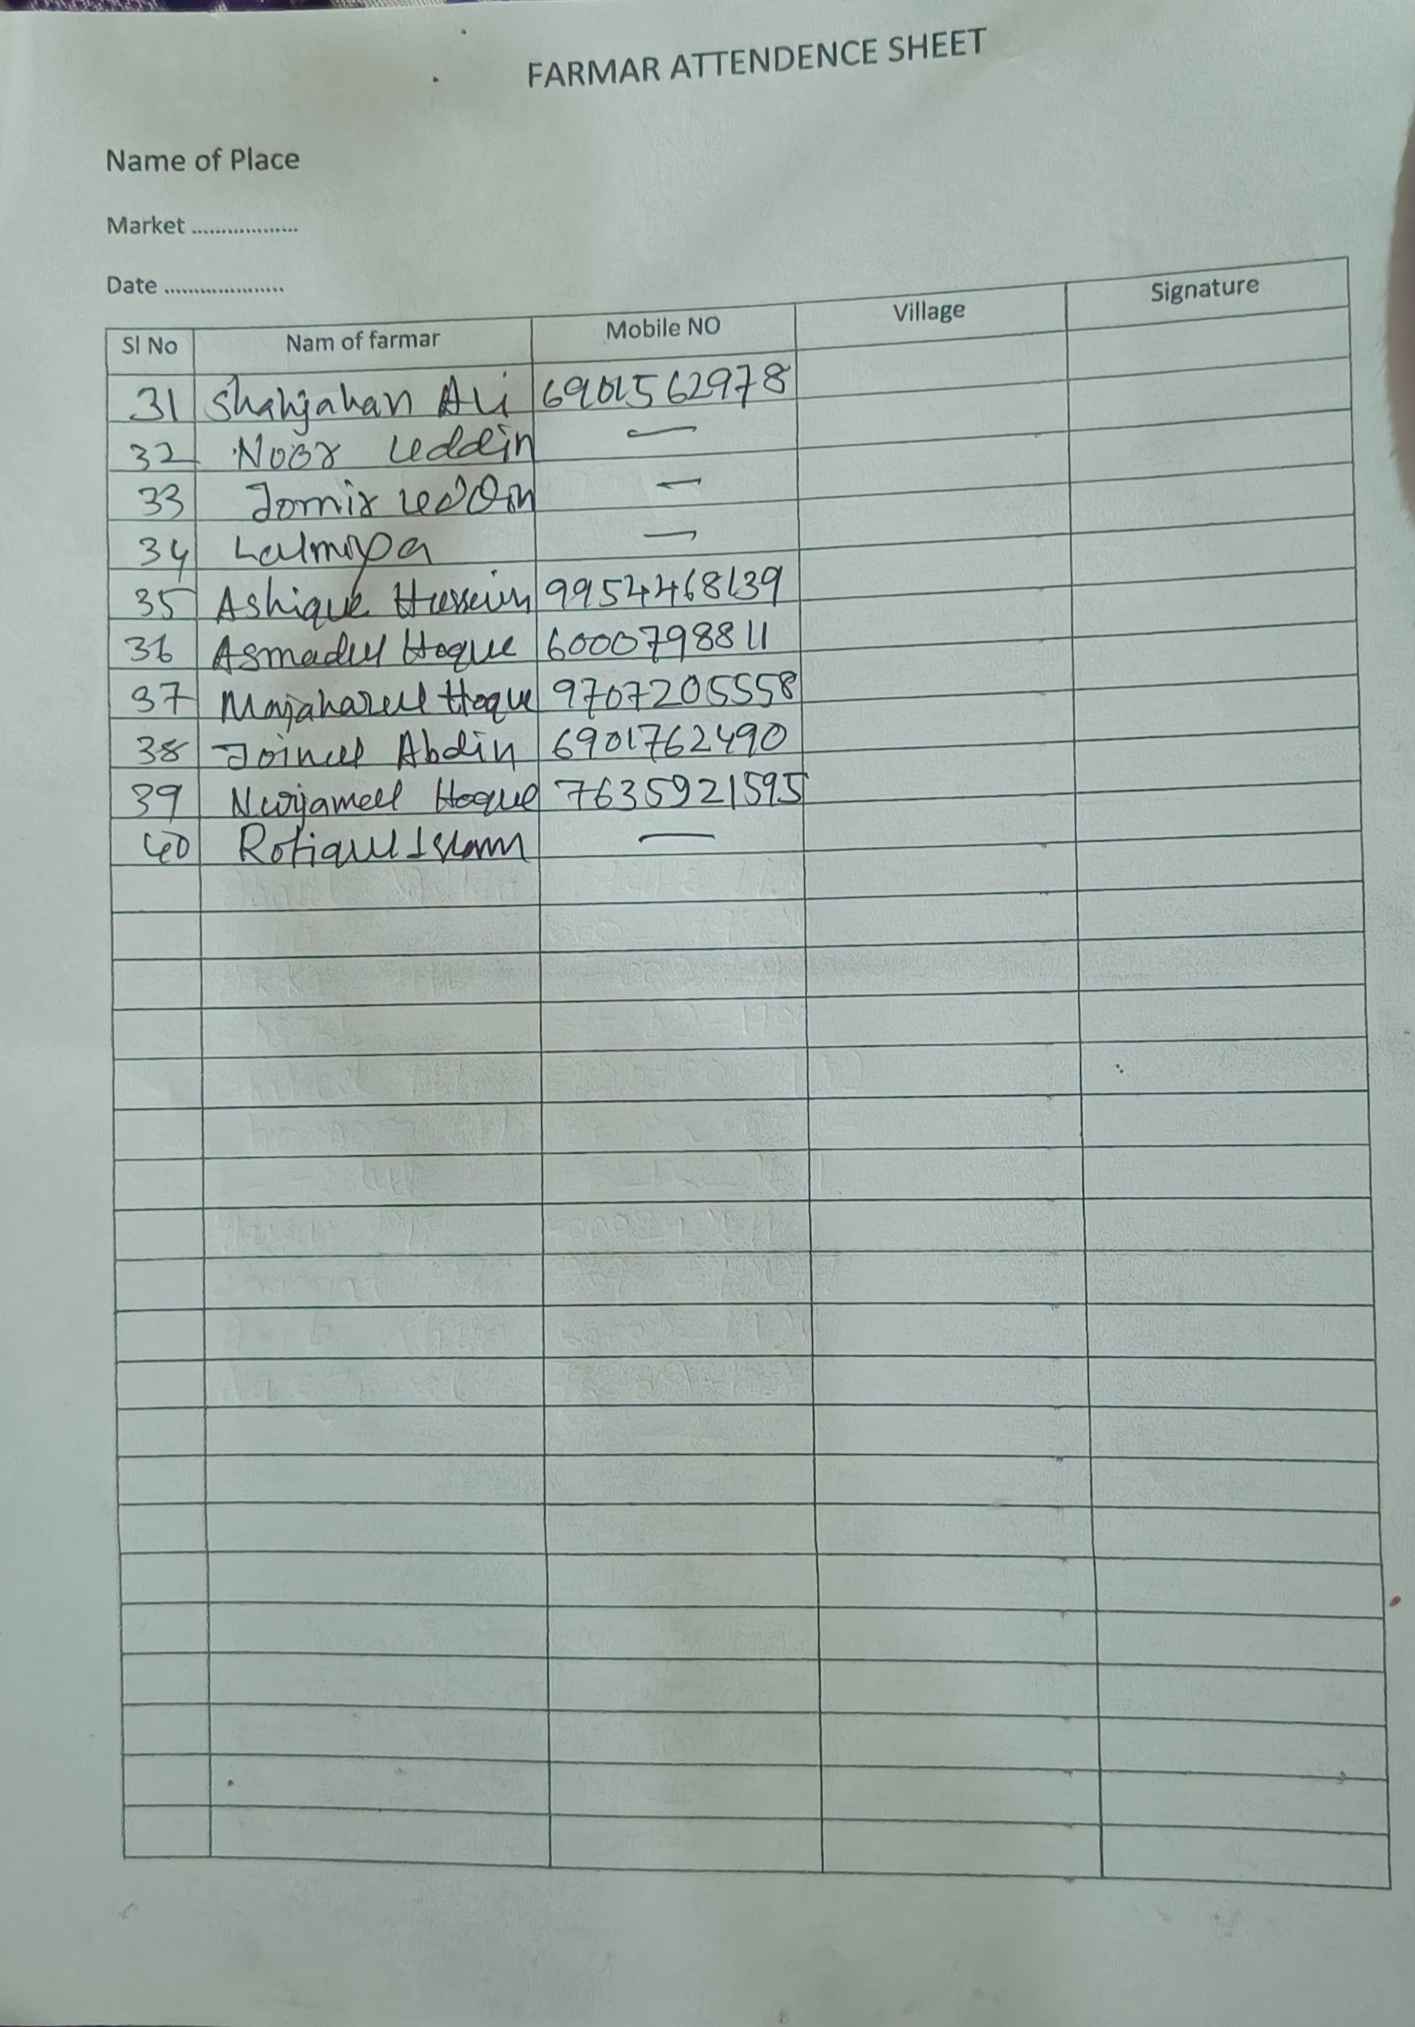 FARMAR ATTENDENCE SHEET
Name of Place
Market ..................
Date ....................
Sl No Nam of farmar Mobile NO Village Signature
31 Shahjahan Ali 6901562978
32 Noor Ueddin —
33 Jomir Ueddin —
34 Lalmiya —
35 Ashique Hussein 9954468139
36 Asmadul Hoque 6000798811
37 Majaharul Hoque 9707205558
38 Joinul Abdin 6901762490
39 Nurjamel Hoque 7635921595
40 Rofiqul Islam —